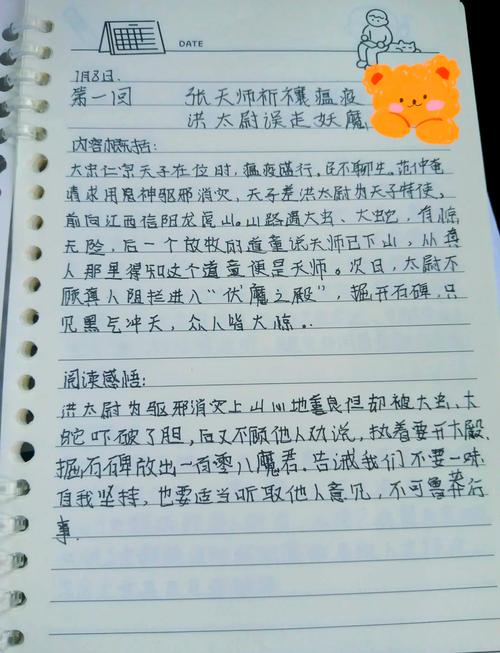 DATE
1月8日.
第一回 张天师祈禳瘟疫
洪太尉误走妖魔
内容概括:
大宋仁宗天子在位时,瘟疫盛行.民不聊生.范仲淹
请求用鬼神驱邪消灾,天子差洪太尉为天子特使,
前向江西信阳龙虎山.山路遇大虫、大蛇,有惊
无险,后一个放牧的道童说天师已下山,从真
人那里得知这个道童便是天师。次日,太尉不
顾真人阻拦进入“伏魔之殿”,掘开石碑,只
见黑气冲天,众人皆大惊..
阅读感悟:
洪太尉为驱邪消灾上山心地善良但却被大虫、大
蛇吓破了胆,后又不顾他人劝说,执着要开大殿.
掘石碑放出一百零八魔君.告诫我们不要一味
自我坚持,也要适当听取他人意见,不可鲁莽行
事.